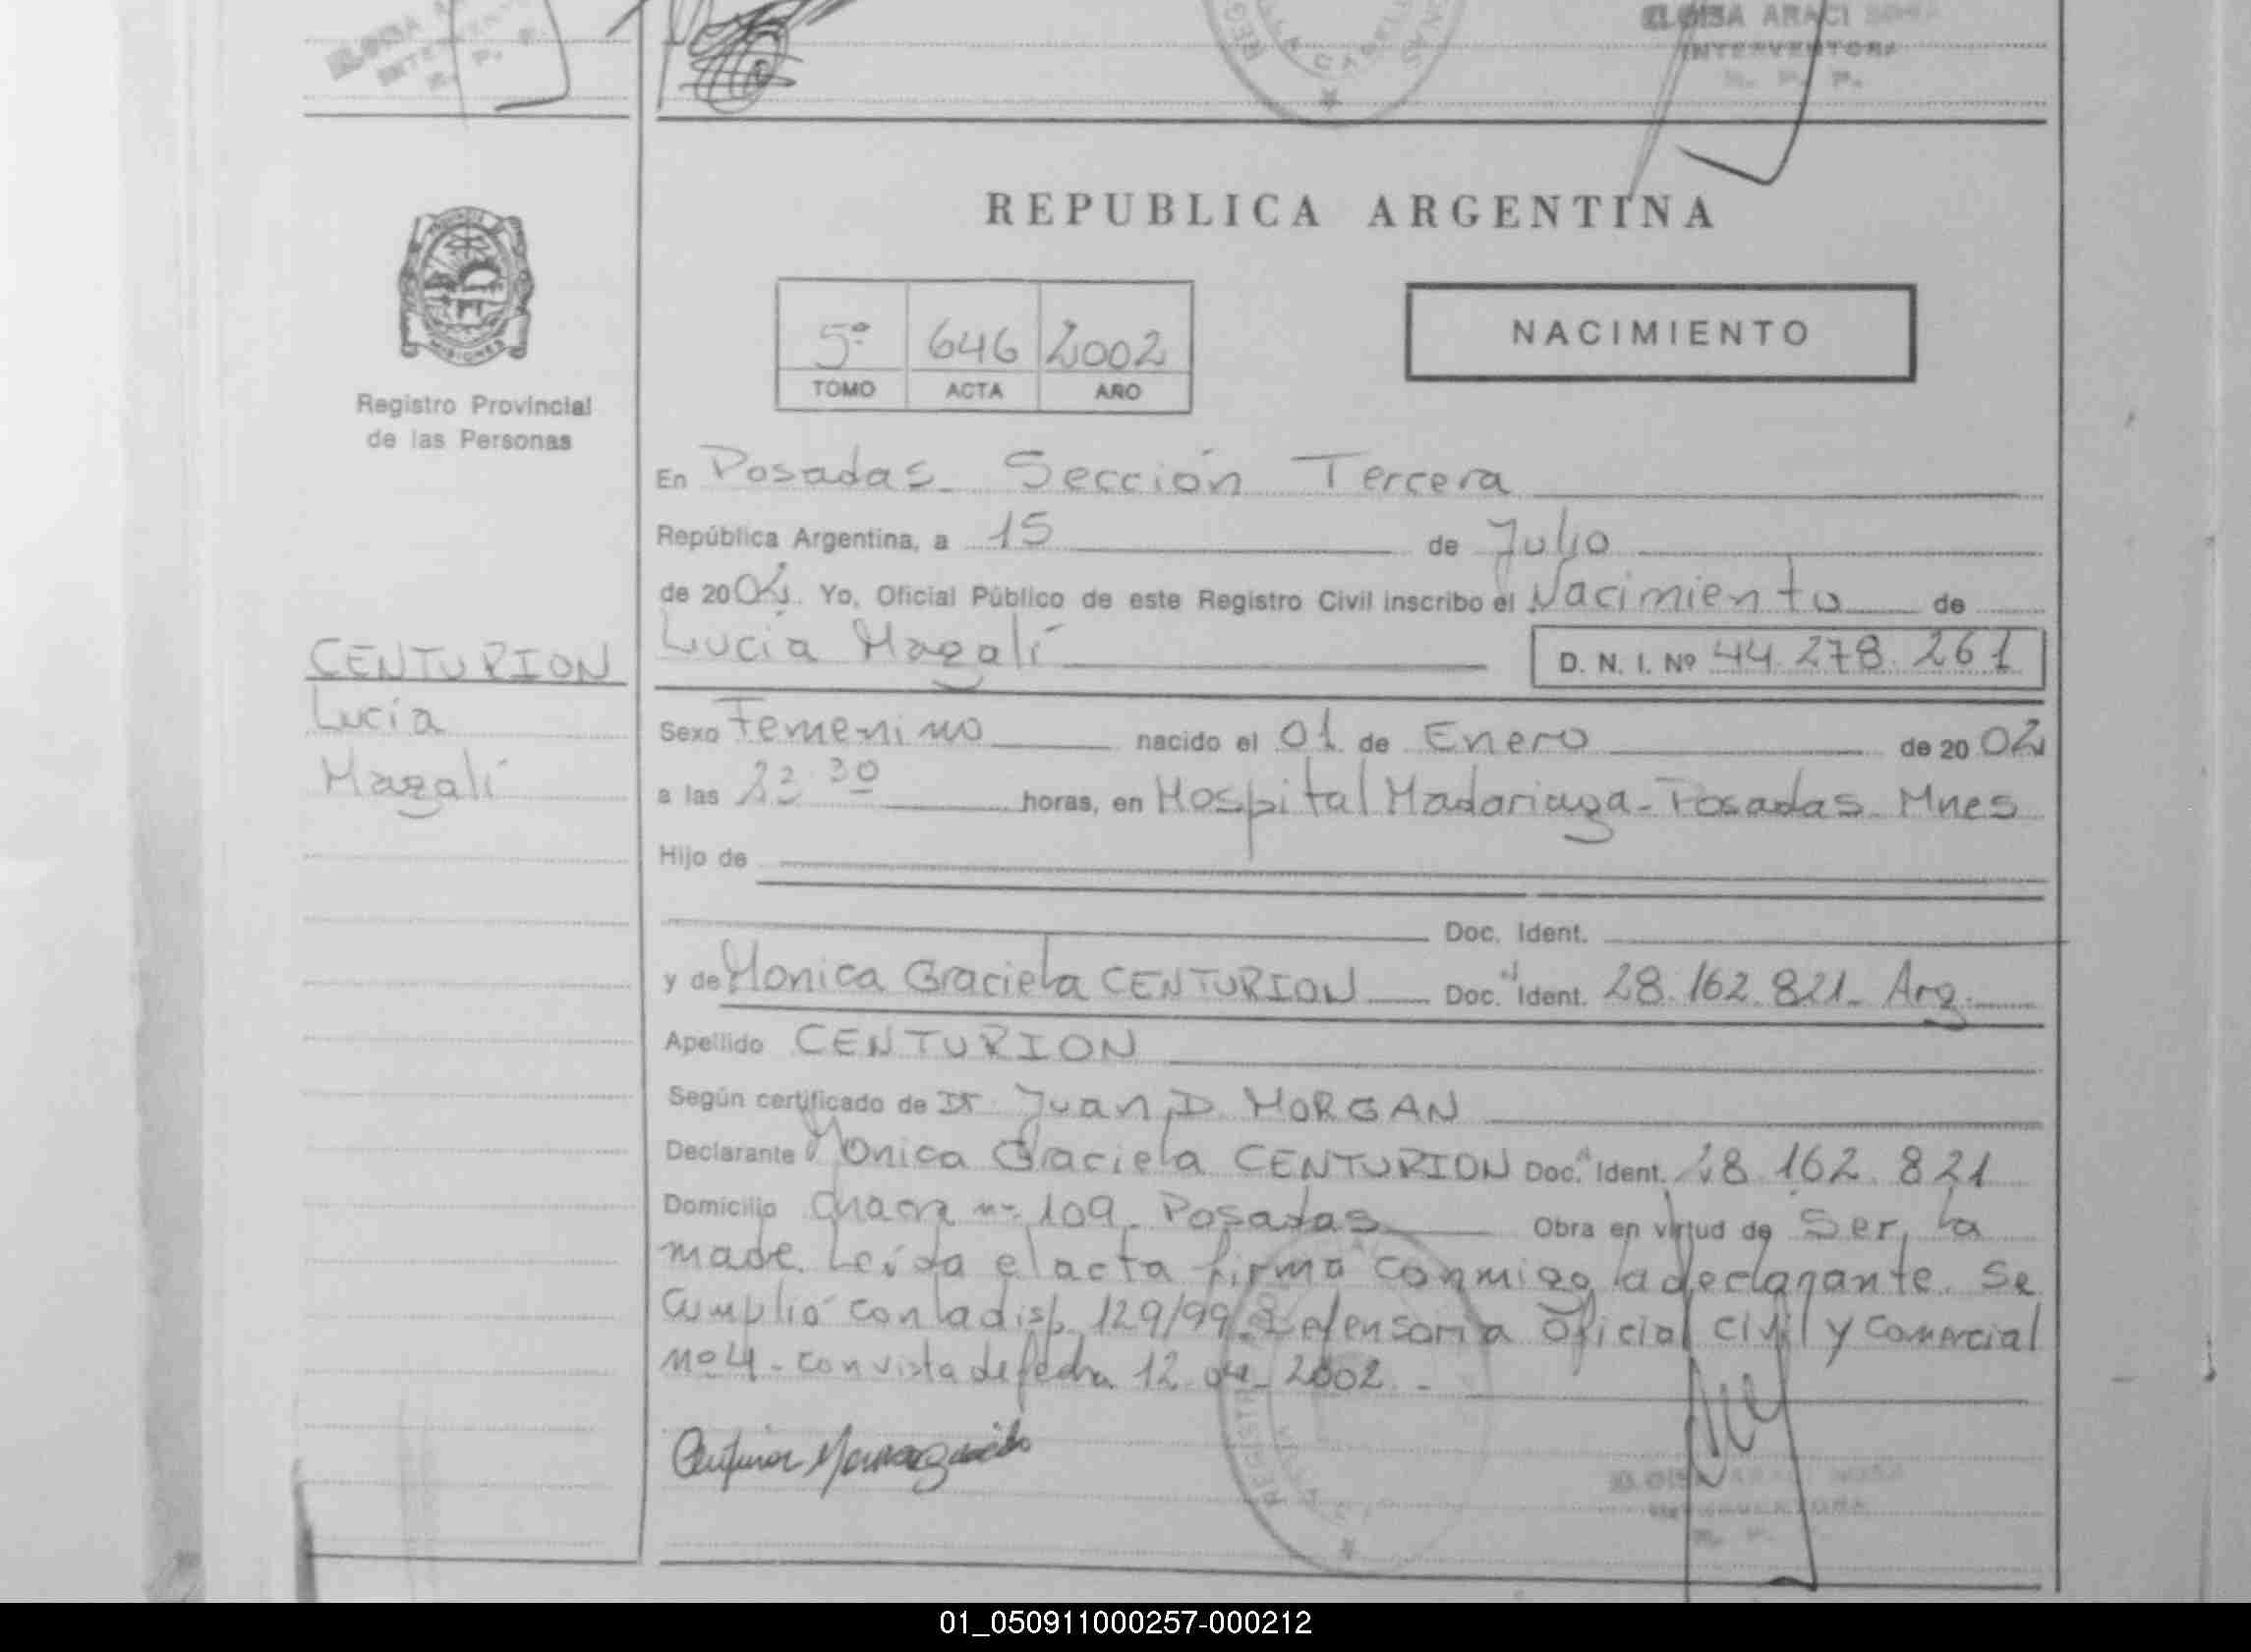 ELOISA ARACI
INTERVENTORA
R. P. P.
REPUBLICA ARGENTINA
MISIONES
Registro Provincial
de las Personas
5º 646 2002
TOMO ACTA AÑO
NACIMIENTO
En Posadas. Sección Tercera
República Argentina, a 15 de Julio
de 2002. Yo, Oficial Público de este Registro Civil inscribo el Nacimiento de
Lucía Magalí D. N. I. Nº 44.278.261
CENTURION
Lucía
Magalí
Sexo Femenino nacido el 01 de Enero de 2002
a las 22.30 horas, en Hospital Madariaga - Posadas. Mnes
Hijo de
Doc. Ident.
y de Monica Graciela CENTURION Doc. Ident. 28.162.821. Arg.
Apellido CENTURION
Según certificado de Dr. Juan D. MORGAN
Declarante Monica Graciela CENTURION Doc. Ident. 28.162.821
Domicilio Chacra nº 109. Posadas Obra en virtud de Ser la
made. Leída el acta firma conmigo la declarante. Se
Cumplió con la disp. 129/99. Defensoria Oficial Civil y Comercial
nº 4 - con vista de fecha 12 2002.-
01_050911000257-000212